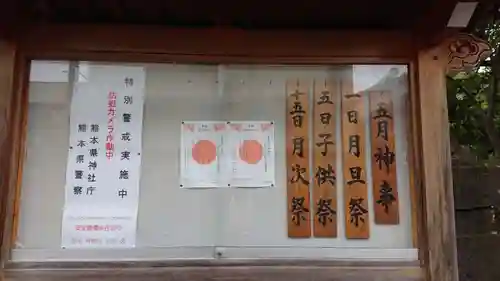 五月神事
一日月旦祭
五日子供祭
十五日月次祭
特別警戒実施中
防犯カメラ作動中
熊本県神社庁
熊本県警察